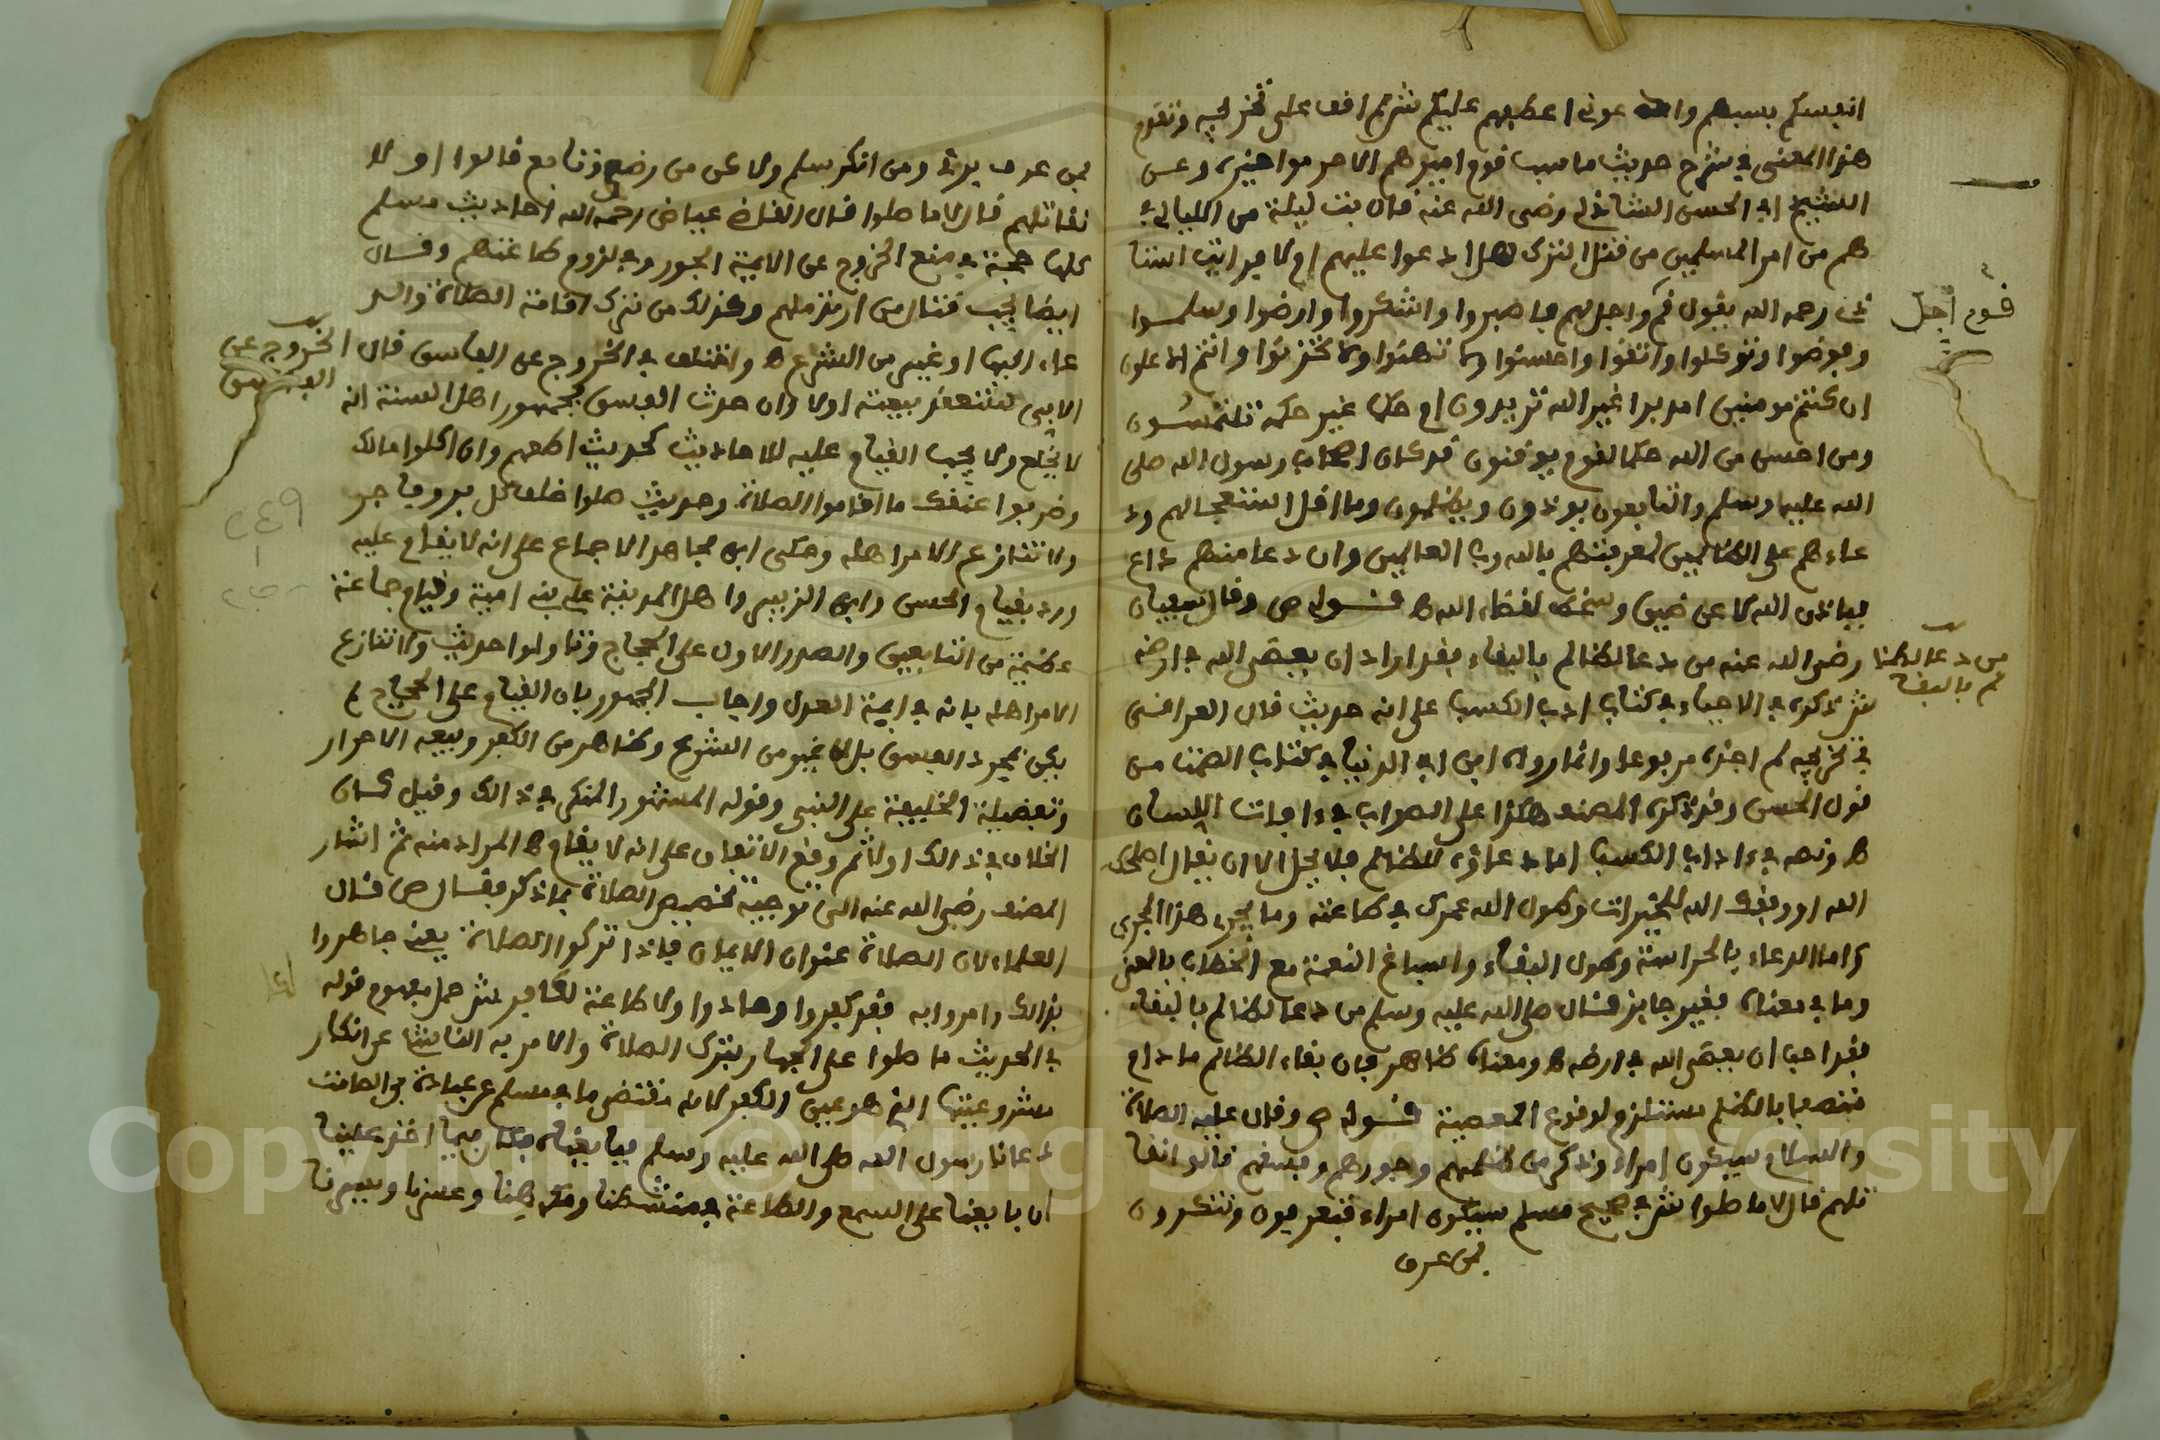 انفسكم بسبهم والله عونى اعطفهم عليكم ش لم اقف على تخريجه وتقدم
هذا المعنى في شرح حديث ما سب قوم اميرهم الا حرموا خيره وعن
الشيخ ابي الحسن الشاذلي رضي الله عنه قال بت ليلة من الليالي في
هم من امر المسلمين من قبل الترك هل ادعوا عليهم ام لا فرايت استا
ذي رحمه الله يقول قم واجل لهم فاصبروا واشكروا وارضوا وسلموا
وفوضوا وتوكلوا واتقوا واحسنوا ولا تهنوا ولا تحزنوا وانتم الاعلون
ان كنتم مومنين امدبرا غير الله تريدون ام حكما غير حكمه تلتمسون
ومن احسن من الله حكما لقوم يوقنون قد كان اصحاب رسول الله صلى
الله عليه وسلم والتابعون يوذون ويظلمون وما اقل استعجالهم ود
عاءهم على الظالمين لمعرفتهم بالله رب العالمين وان دعا منهم داع
فباذن الله لا عن ضيق وسخط لقضاء الله ه قوله ص وقال سفيان
رضي الله عنه من دعا لظالم بالبقاء فقد اراد ان يعصى الله في ارضه
ش ذكره في الاحياء في كتاب ادب الكسب على انه حديث قال العراقي
في تخريجه لم اجده مرفوعا وانما رواه ابن ابي الدنيا في كتاب الصمت من
قول الحسن وقد ذكره المصنف هكذا على الصواب في ءافات اللسان
ه ونصه في ءاداب الكسب اما دعاؤه للظالم فلا يحل الا ان يقال اصلحك
الله او وفقك الله للخيرات وطول الله عمرك في طاعته وما يجري هذا المجرى
واما الدعاء بالحراسة وطول البقاء واسباغ النعمة مع الخطاب بالمعنى
وما في معناه فغير جايز قال صلى الله عليه وسلم من دعا لظالم بالبقاء
فقد احب ان يعصى الله في ارضه ه ومعناه ظاهر فان بقاء الظالم ما دام
متصفا بالظلم مستلزم لوقوع المعصية قوله ص وقال عليه الصلاة
والسلام سيكون امراء وذكر من ظلمهم وجورهم وفسقهم قالوا انقا
تلهم قال لا ما صلوا ش في صحيح مسلم سيكون امراء فتعرفون وتنكرون
فمن عرف
قوم اجل
من دعا لظا
لم بالبقاء
فمن عرف برئ ومن انكر سلم ولاكن من رضي وتابع قالوا افلا
نقاتلهم قال لا ما صلوا قال القاضي عياض رحمه الله احاديث مسلم
كلها حجة في منع الخروج عن الايمة الجورة وفي لزوم طاعتهم وقال
ايضا يجب قتال من ارتد منهم وكذلك من ترك اقامة الصلاة والد
عاء اليها او غير من الشرع ه واختلف في الخروج عن الفاسق قال
الابي لا تنعقد بيعته اولا وان حدث الفسق فجمهور اهل السنة انه
لا يخلع ولا يجب القيام عليه للاحاديث كحديث اطعهم وان اكلوا مالك
وضربوا عنقك ما اقاموا الصلاة وحديث صلوا خلف كل بر وفاجر
ولا تنازع الامر اهله وحكى ابن مجاهد الاجماع على انه لا يقام عليه
ورد بقيام الحسن وابن الزبير واهل المدينة على بني امية وقيام جماعة
عظيمة من التابعين والصدر الاول على الحجاج وتاولوا حديث ولا تنازع
الامر اهله بانه في ايمة العدل واجاب الجمهور بان القيام على الحجاج لم
يكن لمجرد الفسق بل لما غير من الشرع وظاهر من الكفر وبيعه الاحرار
وتفضيله الخليفة على النبي وقوله المشهور المنكر في ذالك وقيل كان
الخلاف في ذالك اولا ثم وقع الاتفاق على انه لا يقام ه المراد منه ثم اشار
المصنف رضي الله عنه الى توجيه تخصيص الصلاة بما ذكر فقال ص قال
العلماء لان الصلاة عنوان الايمان فاذا تركوا الصلاة يعني جاهروا
بذالك وامروا به فقد كفروا وعادوا ولا طاعة لكافر ش حمل مفهوم قوله
في الحديث ما صلوا على الجهار بترك الصلاة والامر به الناشئ عن انكار
مشروعيتها الذي هو عين الكفر لانه مقتضى ما في مسلم عن عبادة بن الصامت
دعانا رسول الله صلى الله عليه وسلم فبايعناه فكان فيما اخذ علينا
ان بايعنا على السمع والطاعة في منشطنا ومكرهنا وعسرنا ويسرنا
الخروج عن
الفاسق
٢٤٩
Copyright © King Saud University